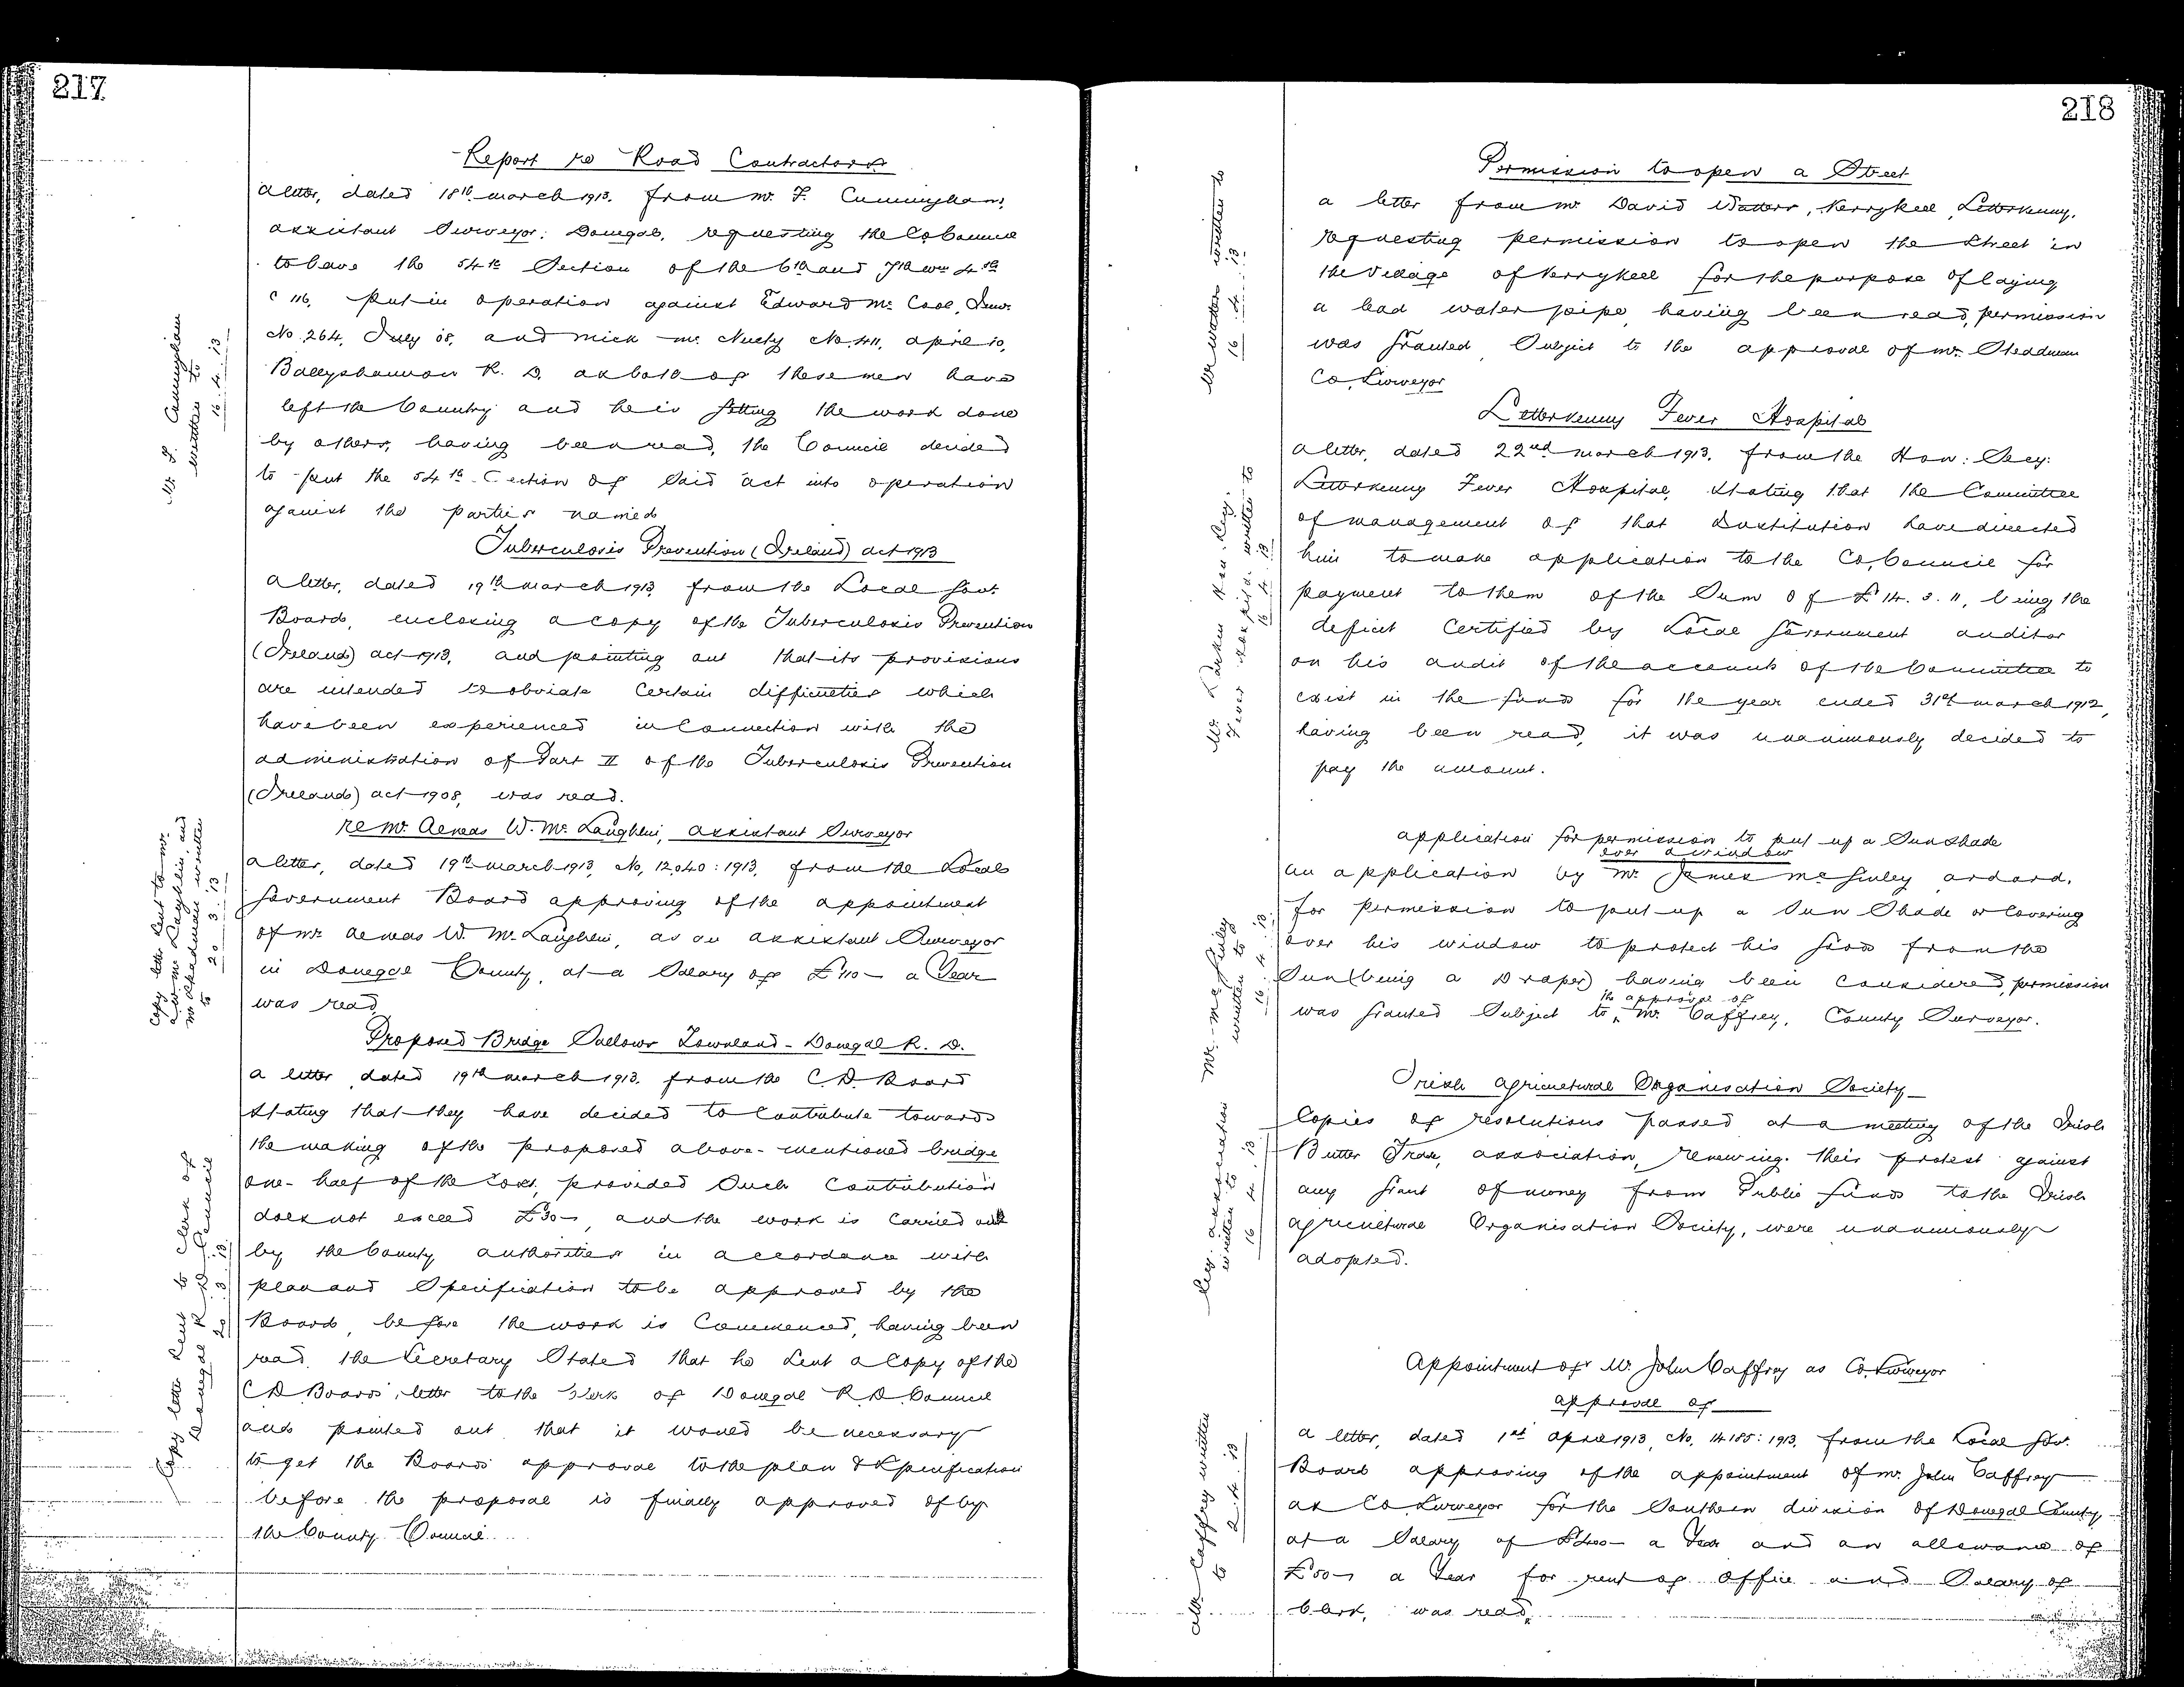 217
Report re Road Contractors
A letter, dated 18th march 1913. from Mr. F. Cunningham,
assistant Surveyor, Donegal, requesting the Co Council
to have the 54th Section of the 6th and 7th Wm 4th
C 116, put in operation against Edward Mc Cool,
No. 264, July 08, and Mick Mc Nuely No. 411, April 10,
Ballyshannon R. D. as both of these men have
left the Country and he is getting the work done
by others, having been read, the Council decided
to put the 54th Section of Said act into operation
against the parties named
Mr. F. Cunningham
written to
16. 4. 13
Tuberculosis Prevention (Ireland) act 1913
A letter, dated 19th march 1913, from the Local Govt.
Board, enclosing a copy of the Tuberculosis Prevention
(Ireland) act 1913, and pointing out that its provisions
are intended to obviate Certain difficulties which
have been experienced in Connection with the
administration of Part II of the Tuberculosis Prevention
(Ireland) act 1908, was read.
re Mr. Aeneas W. Mc Laughlin, assistant Surveyor
A letter, dated 19th march 1913, No, 12,040 : 1913, from the Local
Government Board approving of the appointment
of Mr. Aeneas W. Mc Laughlin, as an assistant Surveyor
in Donegal County, at a Salary of £110- a Year
was read
Copy letter sent to Mr.
Mc Laughlin, and
Mr Steadman written
to 20. 3. 13
Proposed Bridge Sallows Townland - Donegal R. D.
a letter, dated 19th march 1913. from the C. D. Board
Stating that they have decided to Contribute towards
the making of the proposed above-mentioned bridge
one-half of the Cost, provided Such Contribution
does not exceed £30-, and the work is Carried out
by the County authorities in accordance with
plan and Specification to be approved by the
Board, before the work is Commenced, having been
read, the Secretary Stated that he Sent a Copy of the
C D Boards letter to the Clerk of Donegal R. D. Council
and pointed out that it would be necessary
to get the Boards approval to the plan & Specification
before the proposal is finally approved of by
the County Council
Copy letter sent to Clerk of
Donegal R. D. Council
20. 3. 13
218
Permission to open a Street
a letter from Mr David Watters, Kerrykeel, Letterkenny,
requesting permission to open the Street in
the Village of Kerrykeel for the purpose of laying
a lead water pipe, having been read, permission
was Granted Subject to the approval of Mr. Steadman
Co. Surveyor
Mr Watters written to
16. 4. 13
Letterkenny Fever Hospital
A letter, dated 22nd march 1913, from the Hon: Secy:
Letterkenny Fever Hospital, Stating that the Committee
of management of that Institution have directed
him to make application to the Co. Council for
payment to them of the Sum of £14. 3. 11, being the
deficit Certified by Local Government auditor
on his audit of the accounts of the Committee to
exist in the funds for the year ended 31st march 1912,
having been read, it was unanimously decided to
pay the amount.
Hon. Secy.
Fever Hospital written to
16. 4. 13
application for permission to put up a Sun Shade
over a window
an application by Mr. James Mc Ginley Ardara,
for permission to put up a Sun Shade or Covering
over his window to protect his Goods from the
Sun (being a Draper) having been Considered, permission
was Granted Subject to the approval of Mr. Caffrey, County Surveyor.
Mr. Mc Ginley
written to
16. 4. 13
Irish Agricultural Organisation Society
Copies of resolutions passed at a meeting of the Irish
Butter Trade, association, renewing their protest against
any Grant of money from Public funds to the Irish
Agricultural Organisation Society, were unanimously
adopted.
Secy. association
written to
16. 4. 13
Appointment of Mr. John Caffrey as Co. Surveyor
approval of
a letter, dated 1st April 1913, No. 14185: 1913, from the Local Gov.
Board approving of the appointment of Mr. John Caffrey
as Co. Surveyor for the Southern division of Donegal County,
at a Salary of £400- a Year and an allowance of
£50- a Year for rent of Office and Salary of
Clerk, was read.
Mr. Caffrey written
to 2. 4. 13